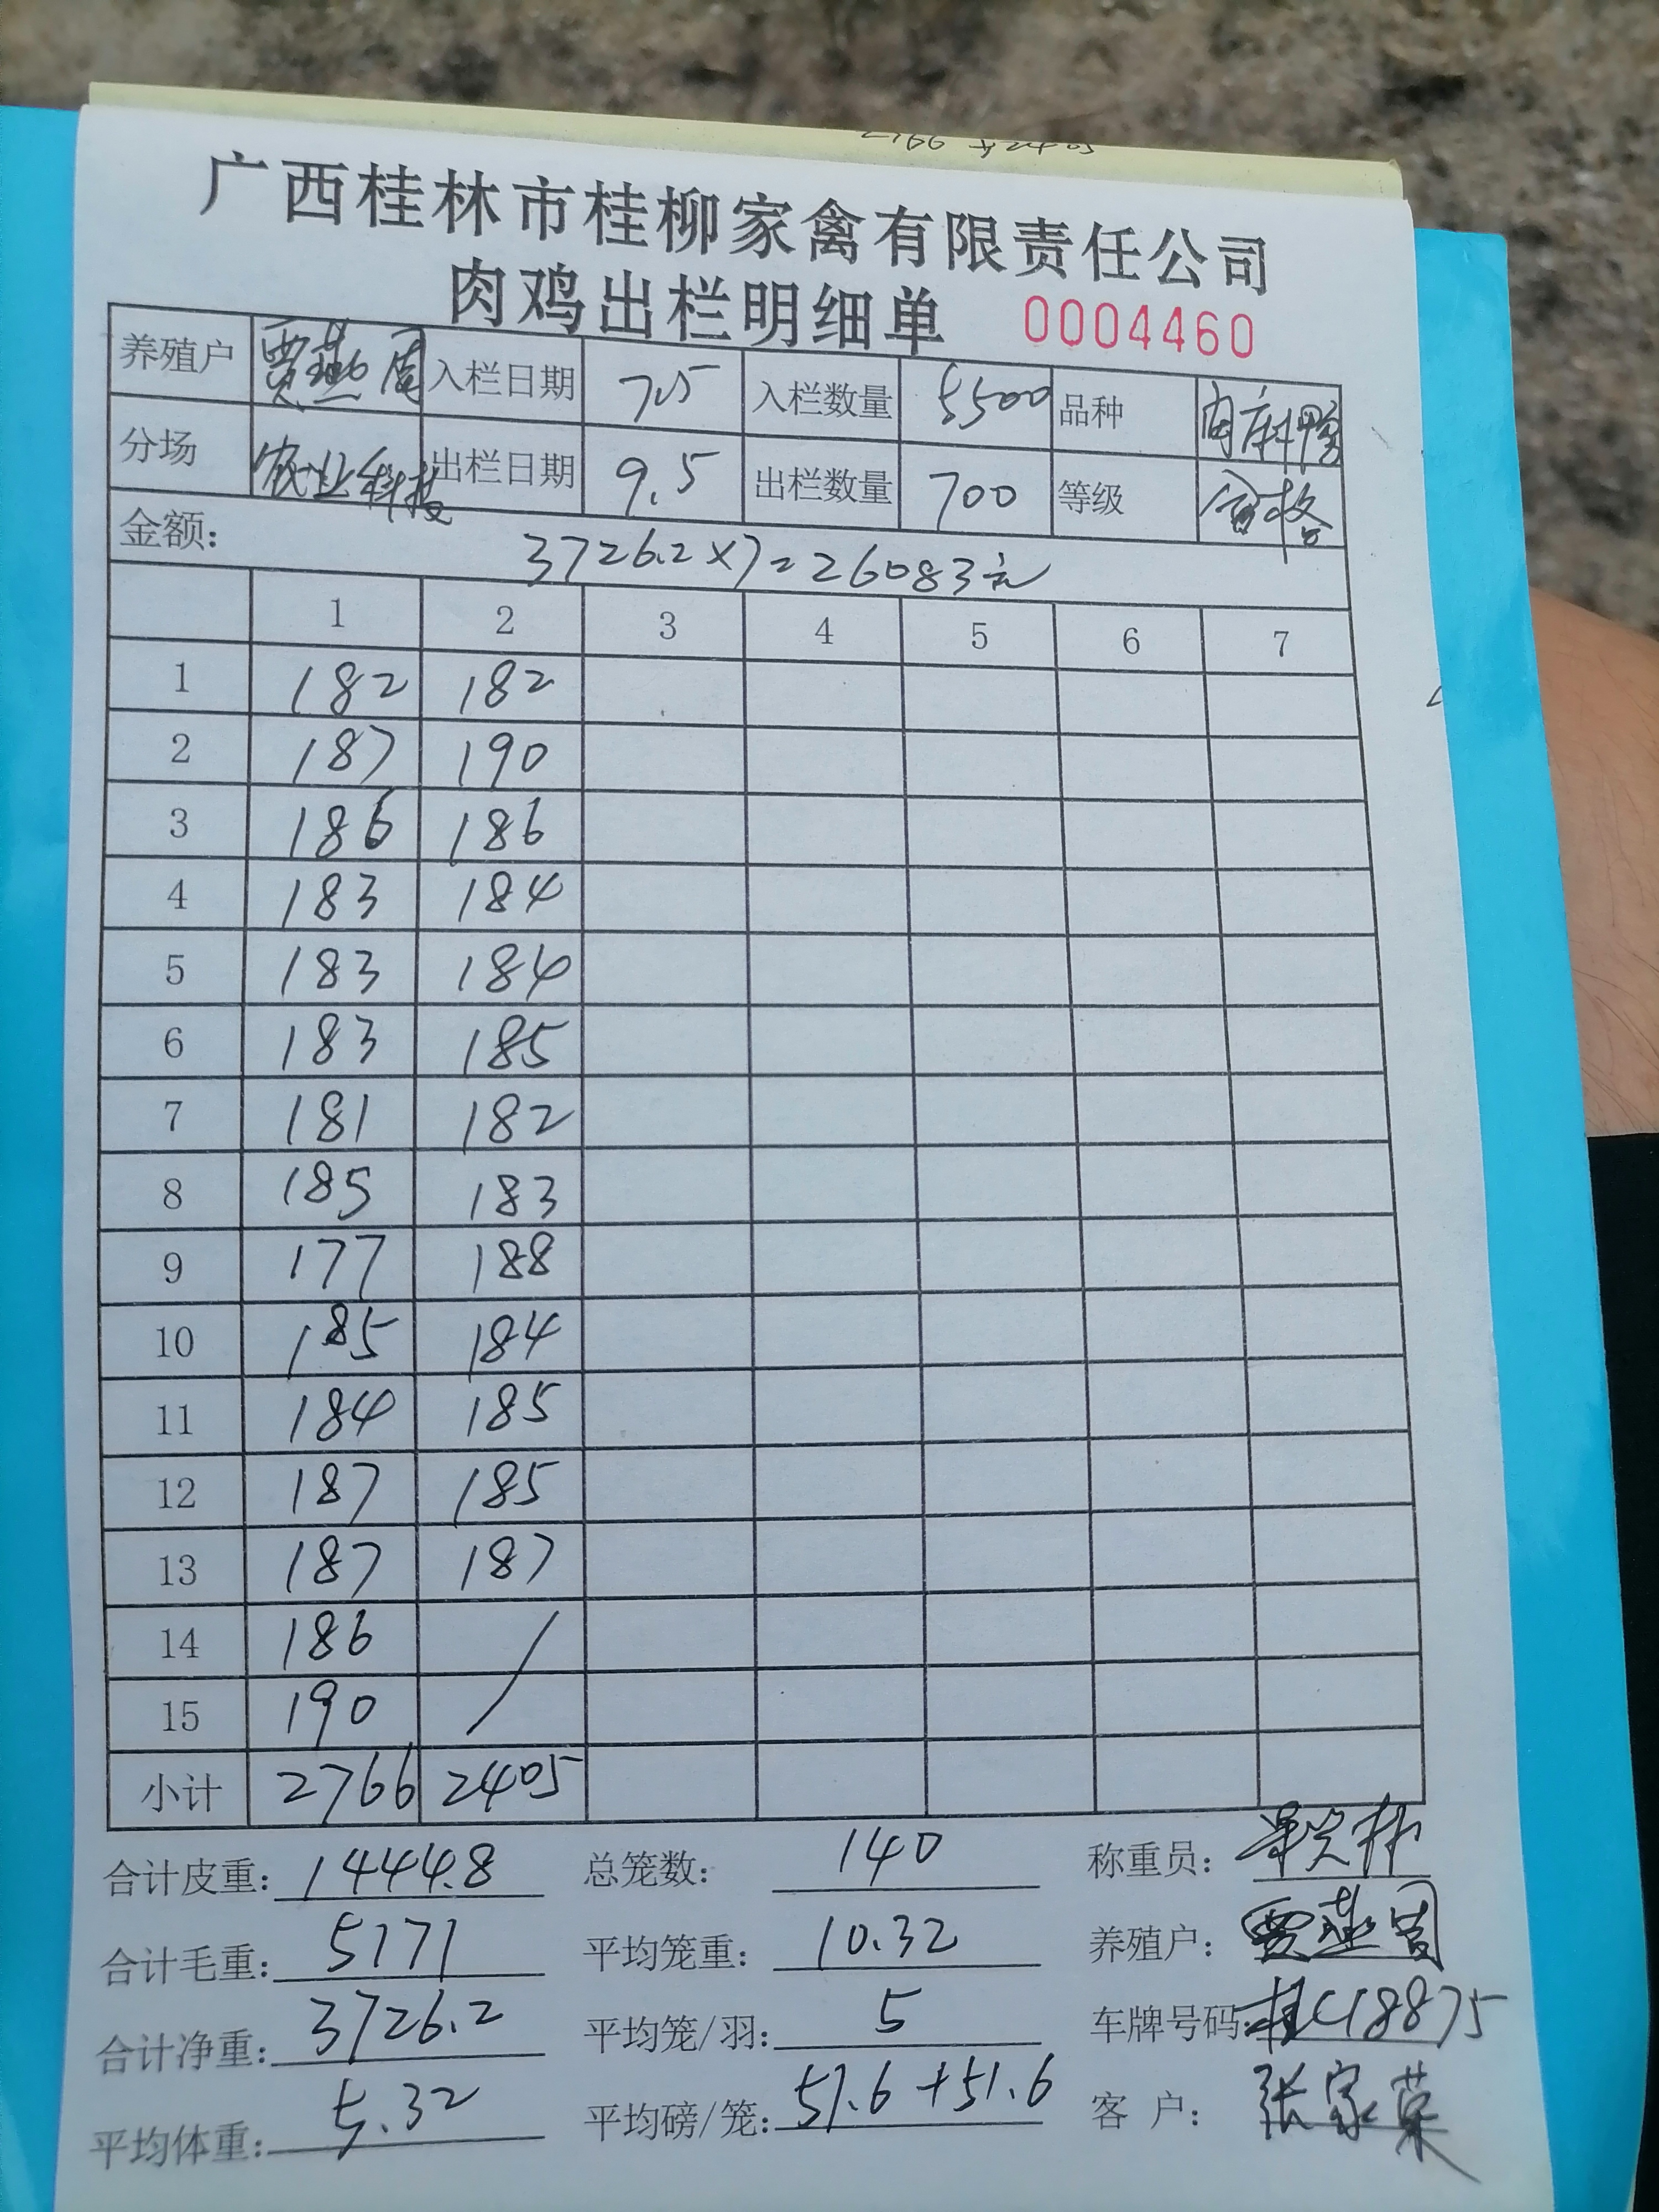 2766 + 2405
广西桂林市桂柳家禽有限责任公司
肉鸡出栏明细单 0004460
养殖户 贾燕周 入栏日期 7.5 入栏数量 5500 品种 肉麻鸭
分场 农业科技 出栏日期 9.5 出栏数量 700 等级 合格
金额： 3726.2×7=26083元
1 2 3 4 5 6 7
1 182 182
2 187 190
3 186 186
4 183 184
5 183 184
6 183 185
7 181 182
8 185 183
9 177 188
10 185 184
11 184 185
12 187 185
13 187 187
14 186
15 190
小计 2766 2405
合计皮重：1444.8 总笼数：140 称重员：
合计毛重：5171 平均笼重：10.32 养殖户：贾燕周
合计净重：3726.2 平均笼/羽：5 车牌号码：桂C18875
平均体重：5.32 平均磅/笼：51.6+51.6 客 户：张家荣